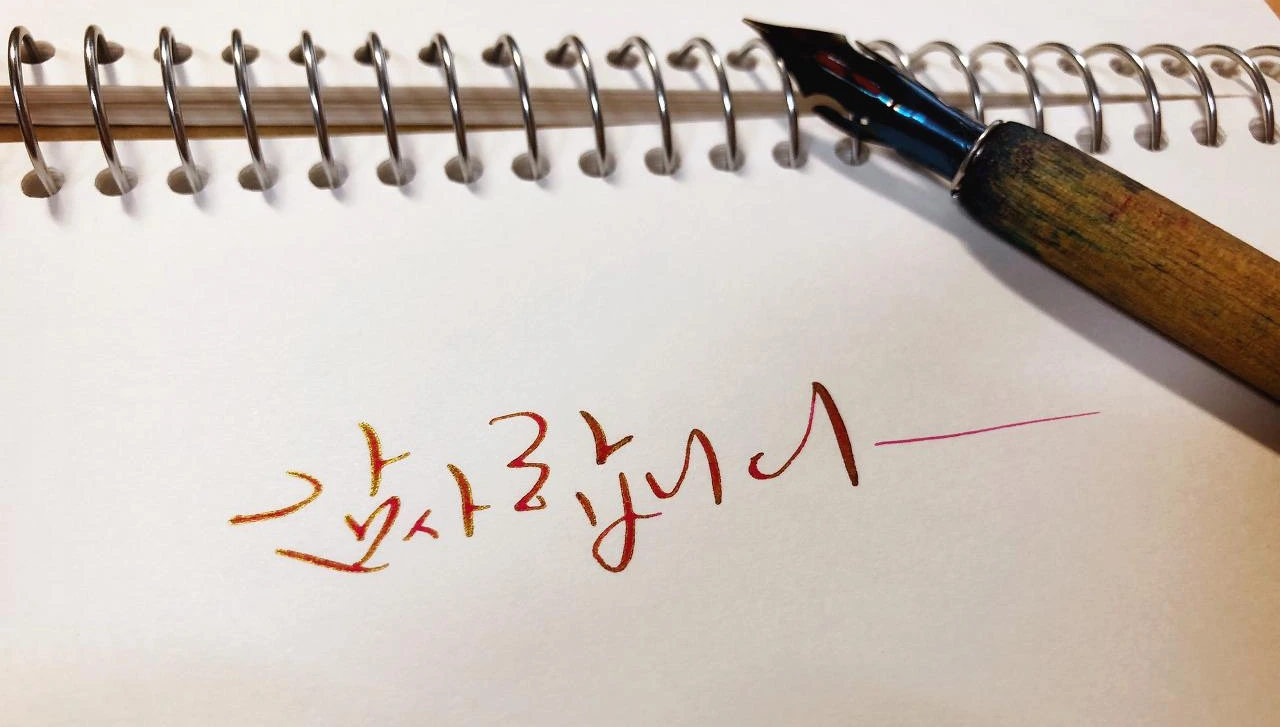 감사합니다